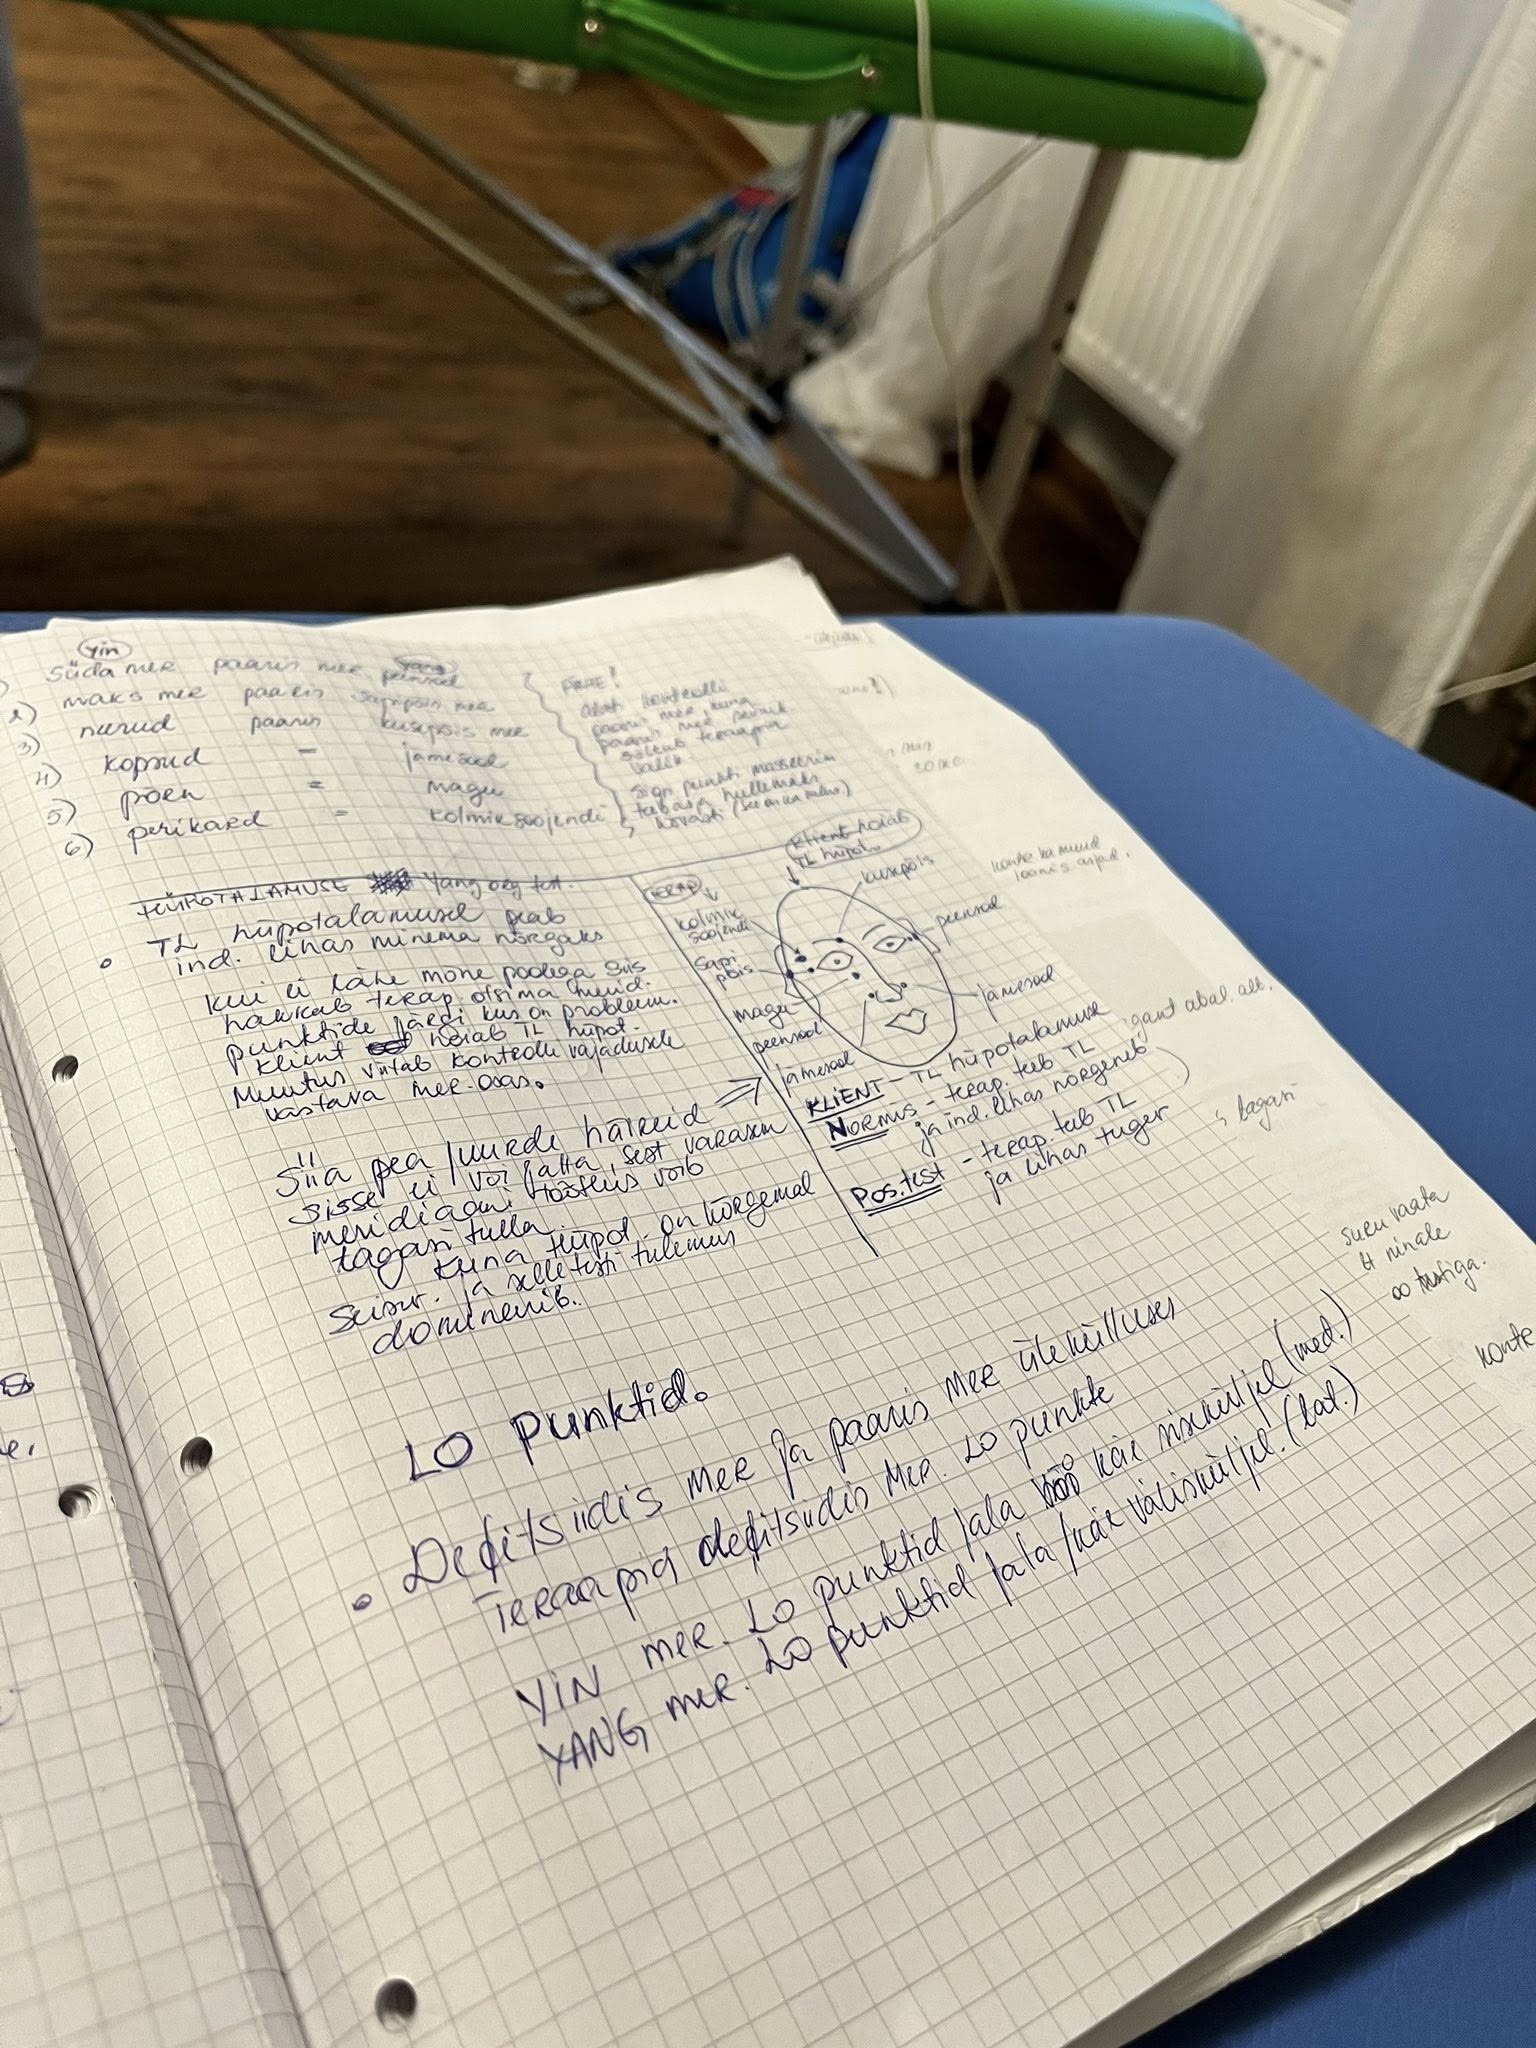 yin
yang
1) Süda mer paaris mer peensool
2) maks mer paaris sapipõis mer
3) neerud paaris kusepõis mer
4) kopsud = jämesool
5) põrn = magu
6) perikard = kolmiksoojendi
alati kontrolli
paaris mer, kuna
paaris mer
sõltub teraapia
valik.
punkti masseerim
HÜPOTALAMUSE Yang org test.
• TL hüpotalamusel peab
ind. lihas minema nõrgaks
kui ei lähe mõne poolega siis
hakkab terap. otsima merid.
punktide järgi kus on probleem.
klient hoiab TL hüpot.
Muutus viitab kontrolli vajadusele
vastava mer. osas.
!! Siia pea juurde häireid
sisse ei või jätta, sest varasem
meridiaani tööstus võib
tagasi tulla.
Kuna hüpot. on kõrgemal
seisv. ja selle testi tulemus
domineerib.
klient hoiab
TL hüpot.
TERAP
kolmik
soojendi
sapi
põis
magu
peensool
jämesool
kusepõis
peensool
jämesool
KLIENT - TL hüpotalamuse
NORMIS - terap. teb TL
ja ind. lihas nõrgeneb
Pos.test - terap. teb TL
ja lihas tugev
LO punktid.
• Defitsiidis mer ja paaris mer ülekülluses
Teraapia defitsiidis mer. LO punkte
YIN mer. LO punktid jala käe siseküljel (med.)
YANG mer. LO punktid jala/käe väliskülje. (lat.)
tagasi
suru vaata
4 minale
konte